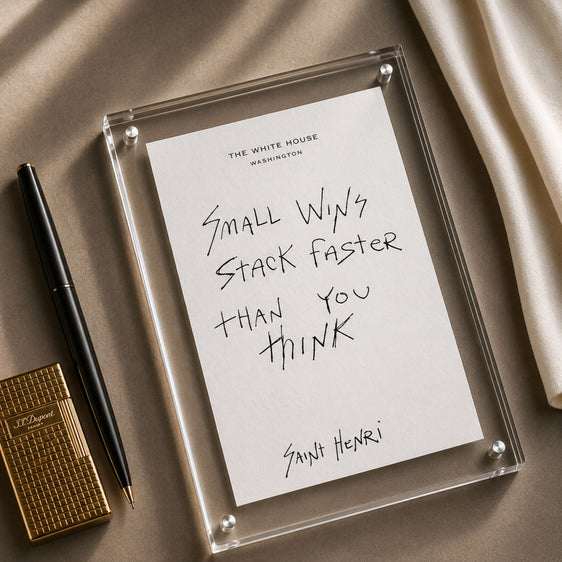 THE WHITE HOUSE
WASHINGTON
SMALL WINS
STACK FASTER
THAN YOU
THINK
SAINT HENRI
S.T. Dupont
PARIS